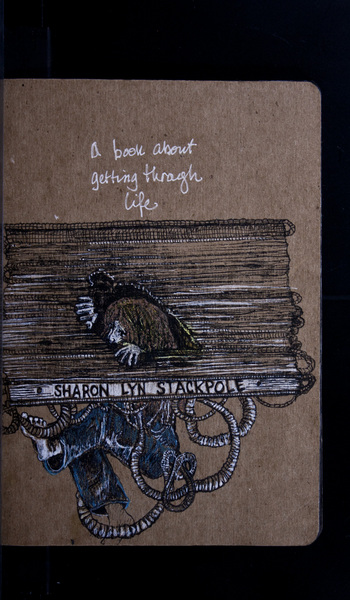 A book about
getting through
life
SHARON LYN STACKPOLE